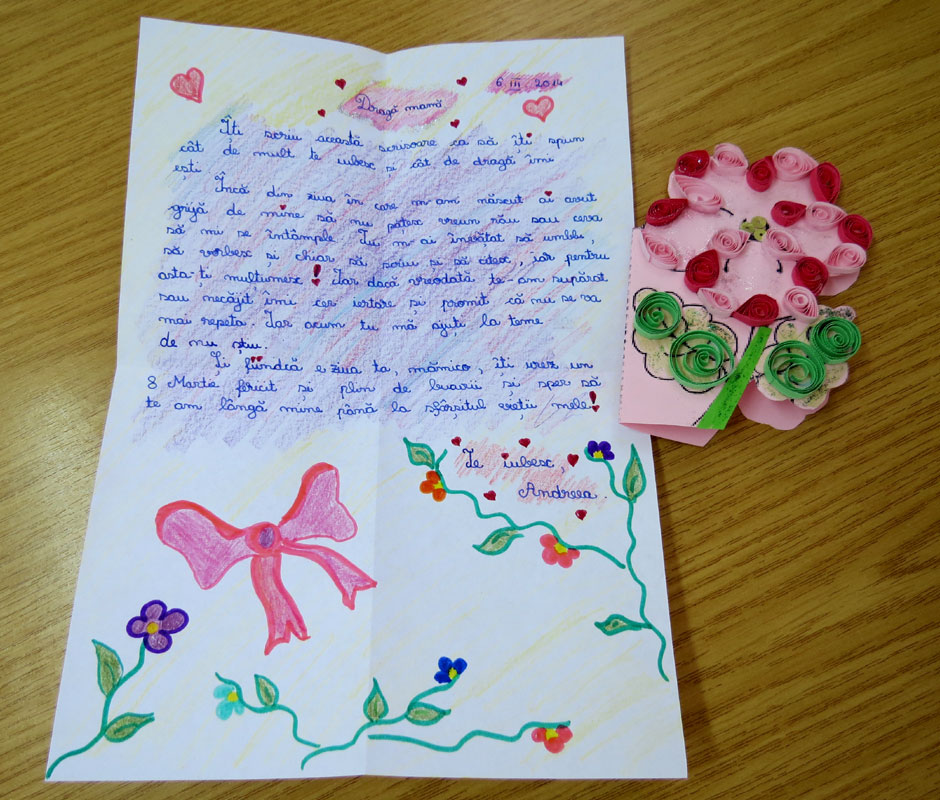 6 III 2014
Dragă mamă
Îți scriu această scrisoare ca să îți spun
cât de mult te iubesc și cât de dragă îmi
ești
Încă din ziua în care m-am născut ai avut
grijă de mine să nu pățesc vreun rău sau ceva
să mi se întâmple. Tu m-ai învățat să umblu,
să vorbesc și chiar să scriu și să citesc, iar pentru
asta-ți mulțumesc! Iar dacă vreodată te-am supărat
sau necăjit îmi cer iertare și promit că nu se va
mai repeta. Iar acum tu mă ajuți la teme
de nu știu.
Și fiindcă e ziua ta, mămico, îți urez un
8 Martie fericit și plin de bucurii și sper să
te am lângă mine până la sfârșitul vieții mele!
Te iubesc,
Andreea.